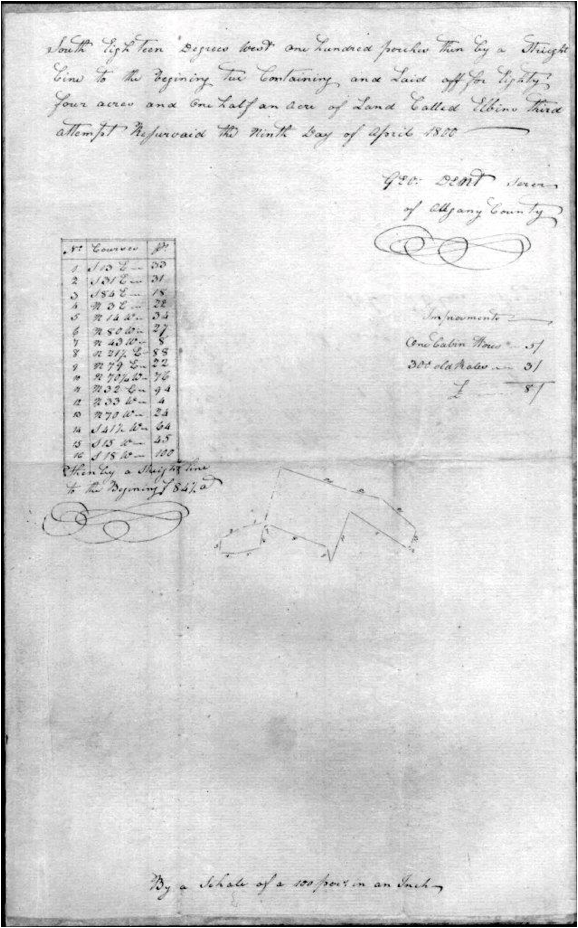 South Eigh teen Degrees West one hundred perches then by a Streight
Line to the Begining tree Containing and Laid off for Eighty
four acres and one half an acre of Land Called Elbins third
attempt Resurvaid the Ninth Day of April 1800
Geo: Dent
of Allgany County
No Courses ps
1 S 13 E 33
2 S 31 E 31
3 S 84 E 18
4 N 3 E 22
5 N 14 W 34
6 N 80 W 27
7 N 43 W 8
8 N 21½ E 88
9 N 79 E 22
10 N 70½ W 76
11 N 32 E 94
12 N 33 W 4
13 N 70 W 24
14 S 41½ W 64
15 S 15 W 45
16 S 18 W 100
Then by a Streight line
to the Begining 84½ a
One Cabin 5/
300 old Rales 3/
£ 8/
By a Schale of a 100 in an Inch